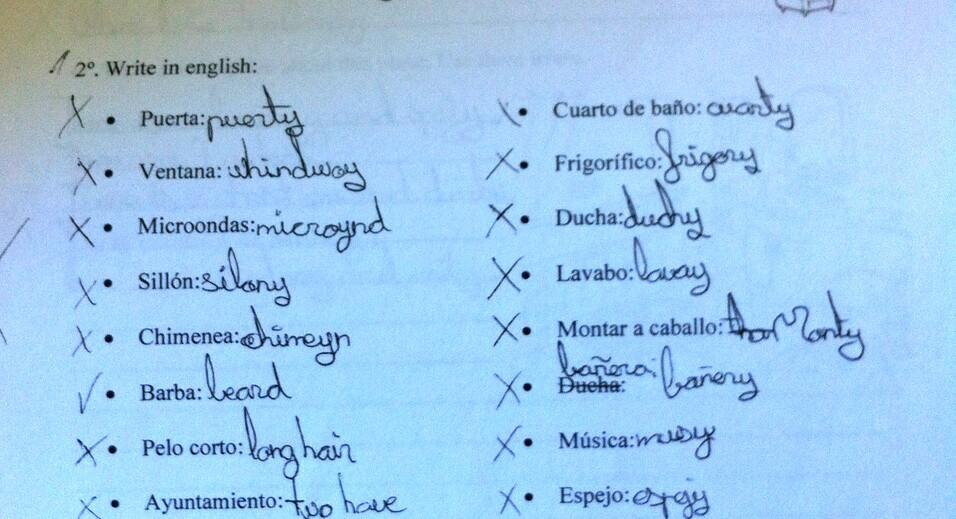 2º. Write in english:
Puerta: puerty
Ventana: whindway
Microondas: microynd
Sillón: silony
Chimenea: chimeyn
Barba: beard
Pelo corto: long hair
Ayuntamiento: two have
Cuarto de baño: cuarty
Frigorífico: frigory
Ducha: duchy
Lavabo: lavay
Montar a caballo: Monty
bañera:
Ducha: bañery
Música: musy
Espejo: espejy